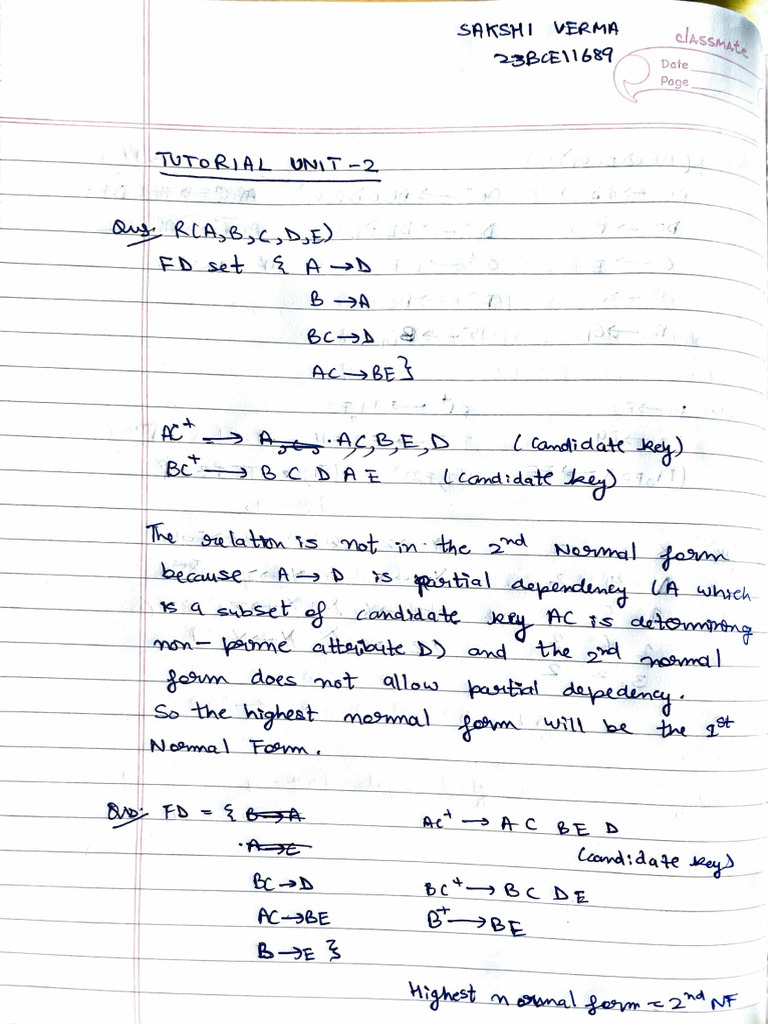 SAKSHI VERMA
23BCE11689
classmate
Date
Page
TUTORIAL UNIT-2
Ques. R(A,B,C,D,E)
FD set { A → D
B → A
BC → D
AC → BE }
AC+ → A, C, . A C, B, E, D (candidate key)
BC+ → B C D A E (candidate key)
The relation is not in the 2nd Normal form
because A → D is partial dependency (A which
is a subset of candidate key AC is determining
non-prime attribute D) and the 2nd normal
form does not allow partial depedency.
So the highest normal form will be the 1st
Normal Form.
Ques. FD = { B → A
A → C
BC → D
AC → BE
B → E }
AC+ → A C BE D
(candidate key)
BC+ → B C D E
B+ → BE
Highest normal form = 2nd NF